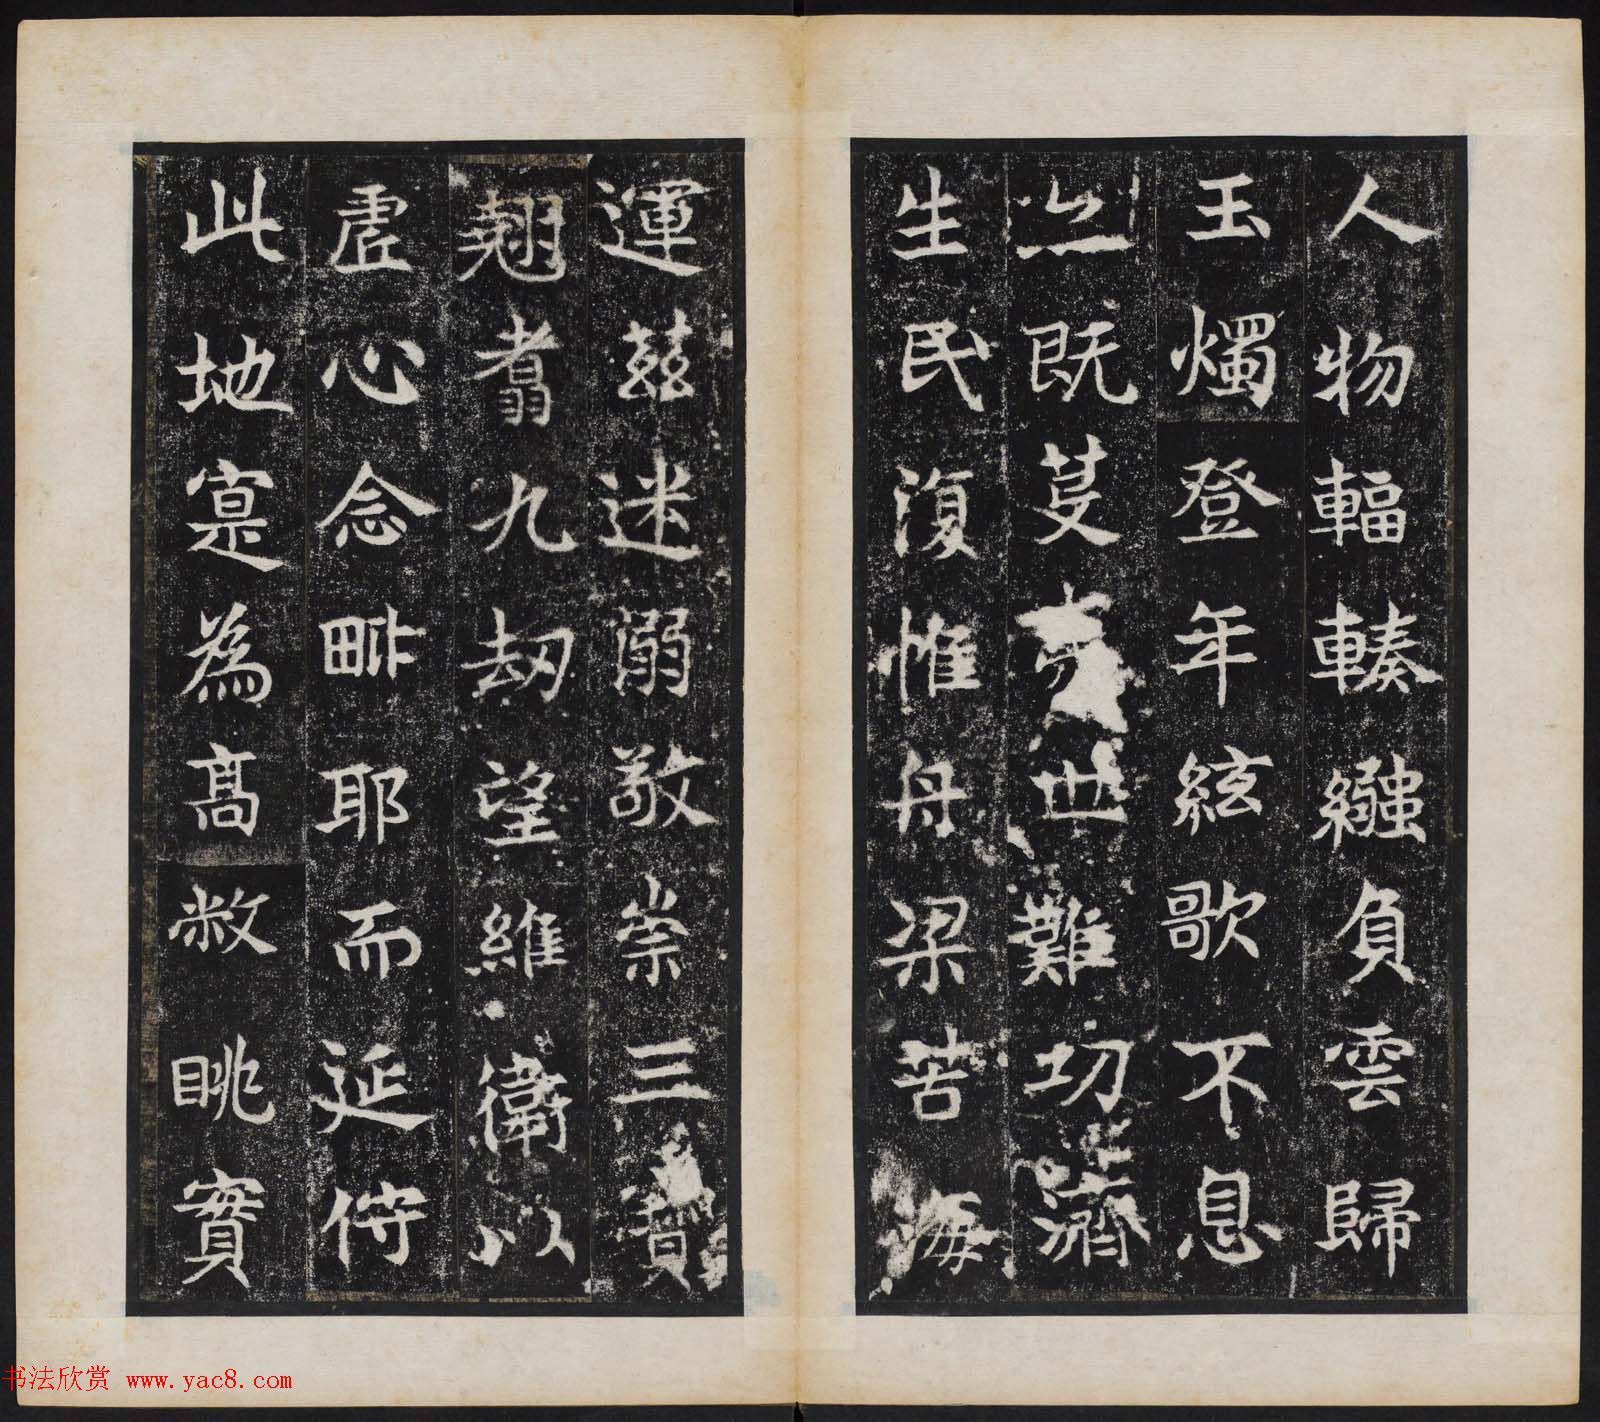 人物輻輳繈負雲歸
玉燭登年絃歌不息
公既芟世難功濟
生民復惟舟梁苦海
運茲迷溺敬崇三寶
翹翥九刼望維衛以
虛心念毗耶而延佇
此地寔為高敞眺實
书法欣赏 www.yac8.com